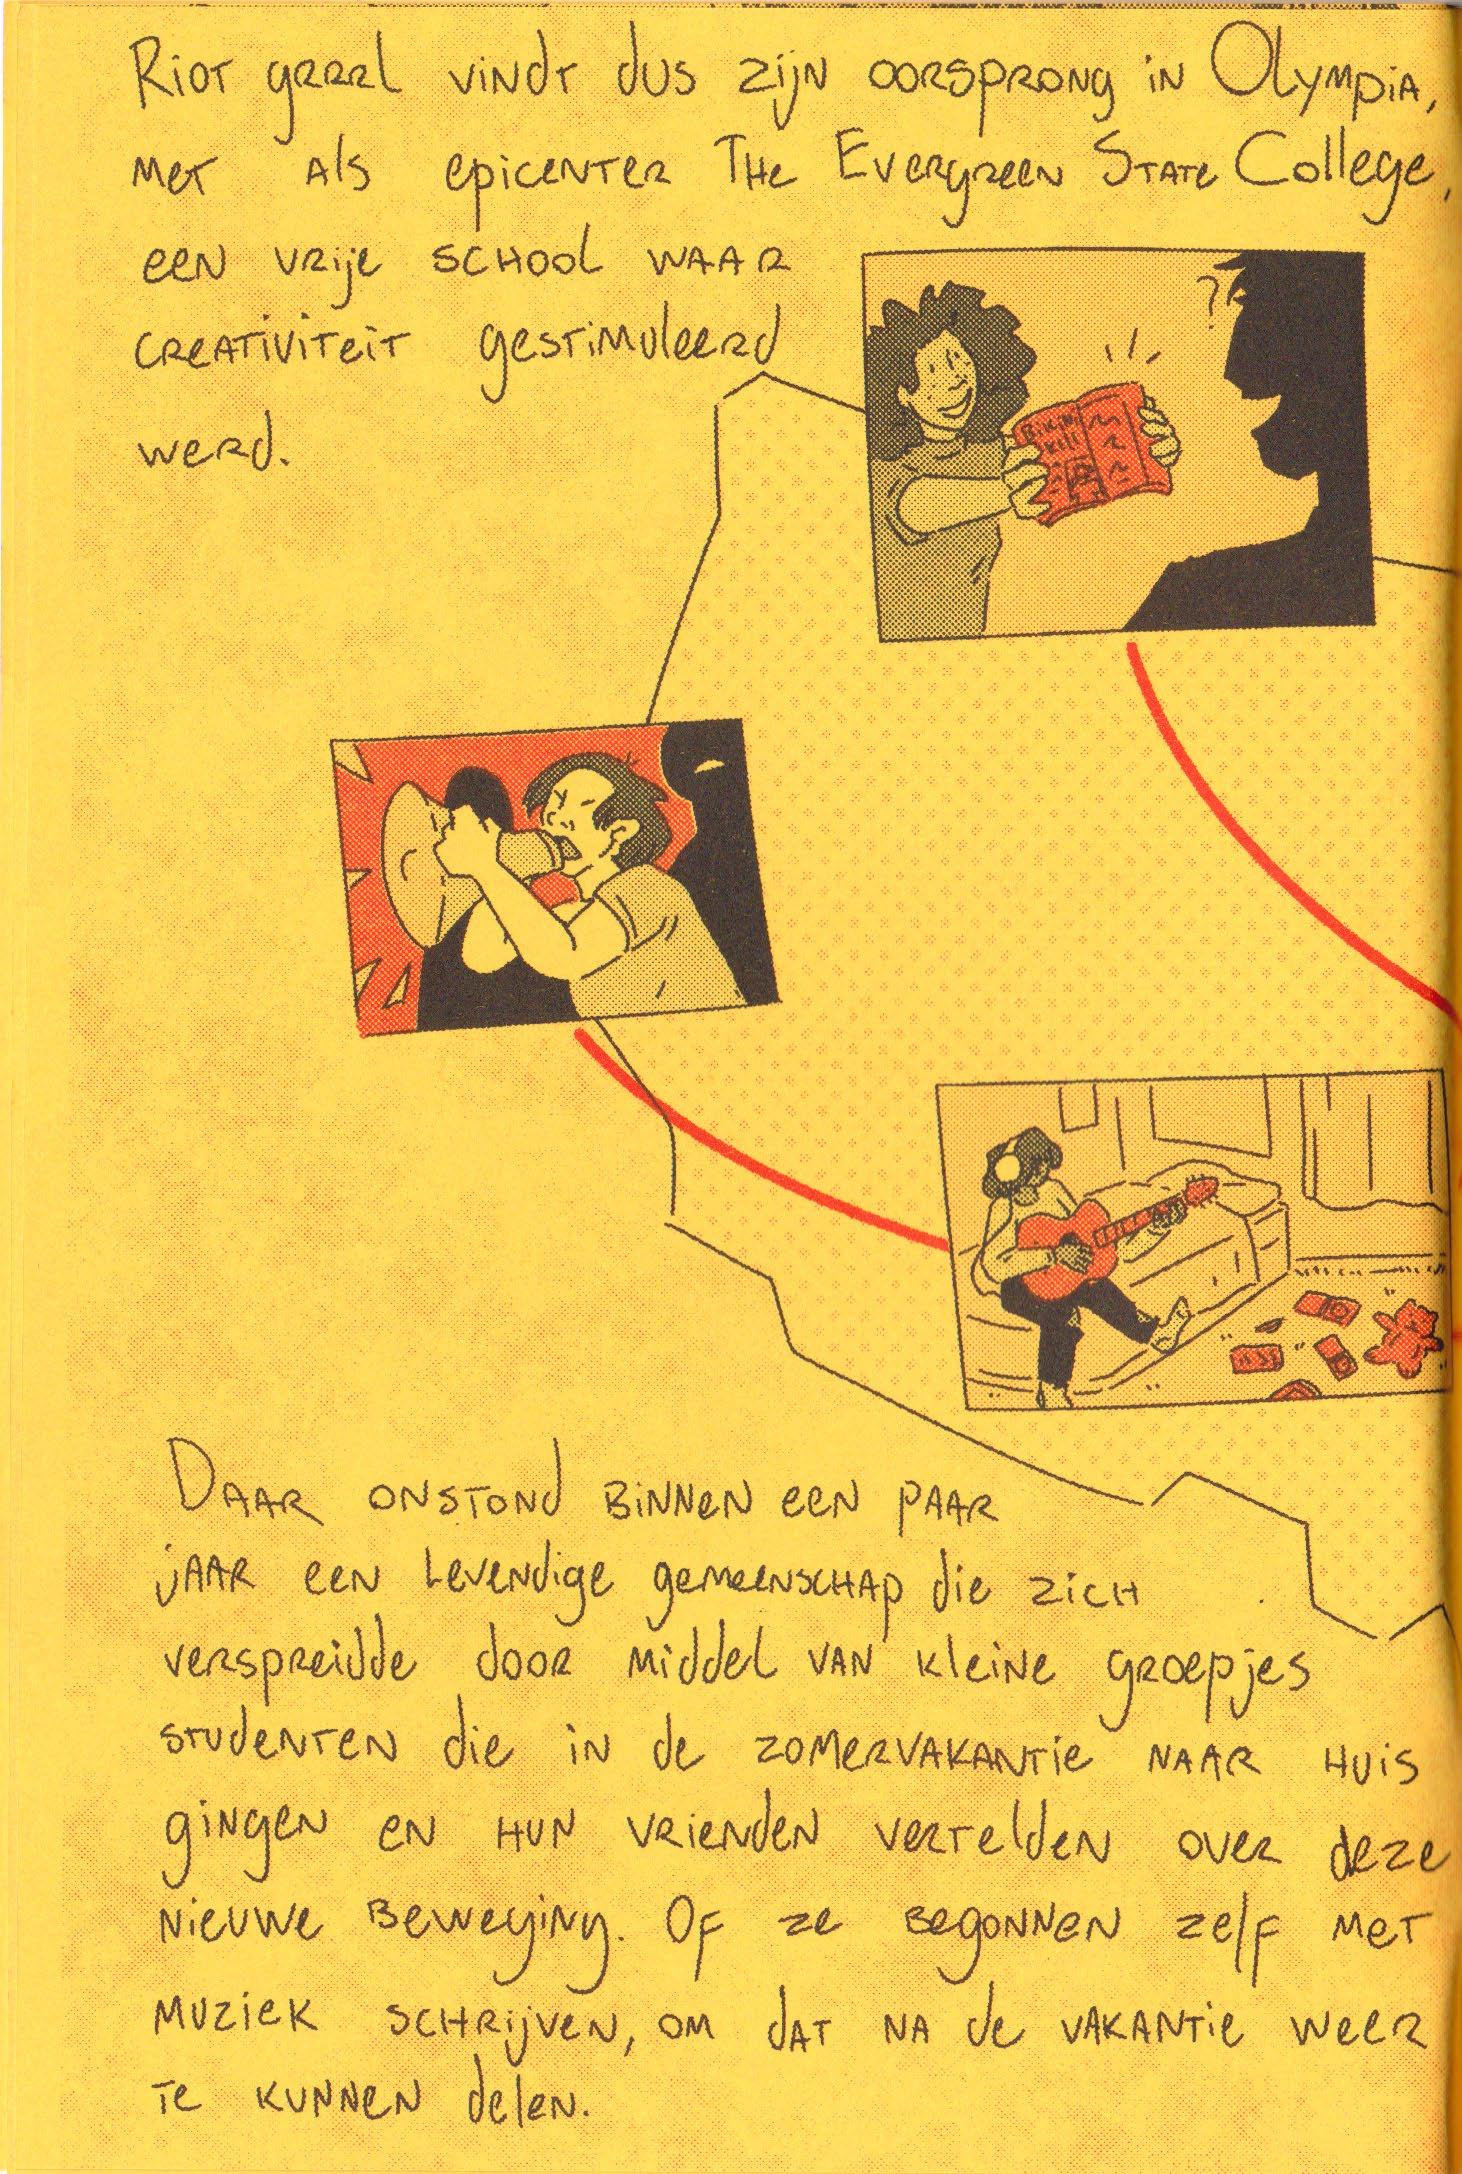 Riot grrrl vindt dus zijn oorsprong in Olympia,
met als epicenter The Evergreen State College,
een vrije school waar
creativiteit gestimuleerd
werd.
?
Bikini
Kill
Daar onstond binnen een paar
jaar een levendige gemeenschap die zich
verspreidde door middel van kleine groepjes
studenten die in de zomervakantie naar huis
gingen en hun vrienden vertelden over deze
nieuwe beweging. Of ze begonnen zelf met
muziek schrijven, om dat na de vakantie weer
te kunnen delen.